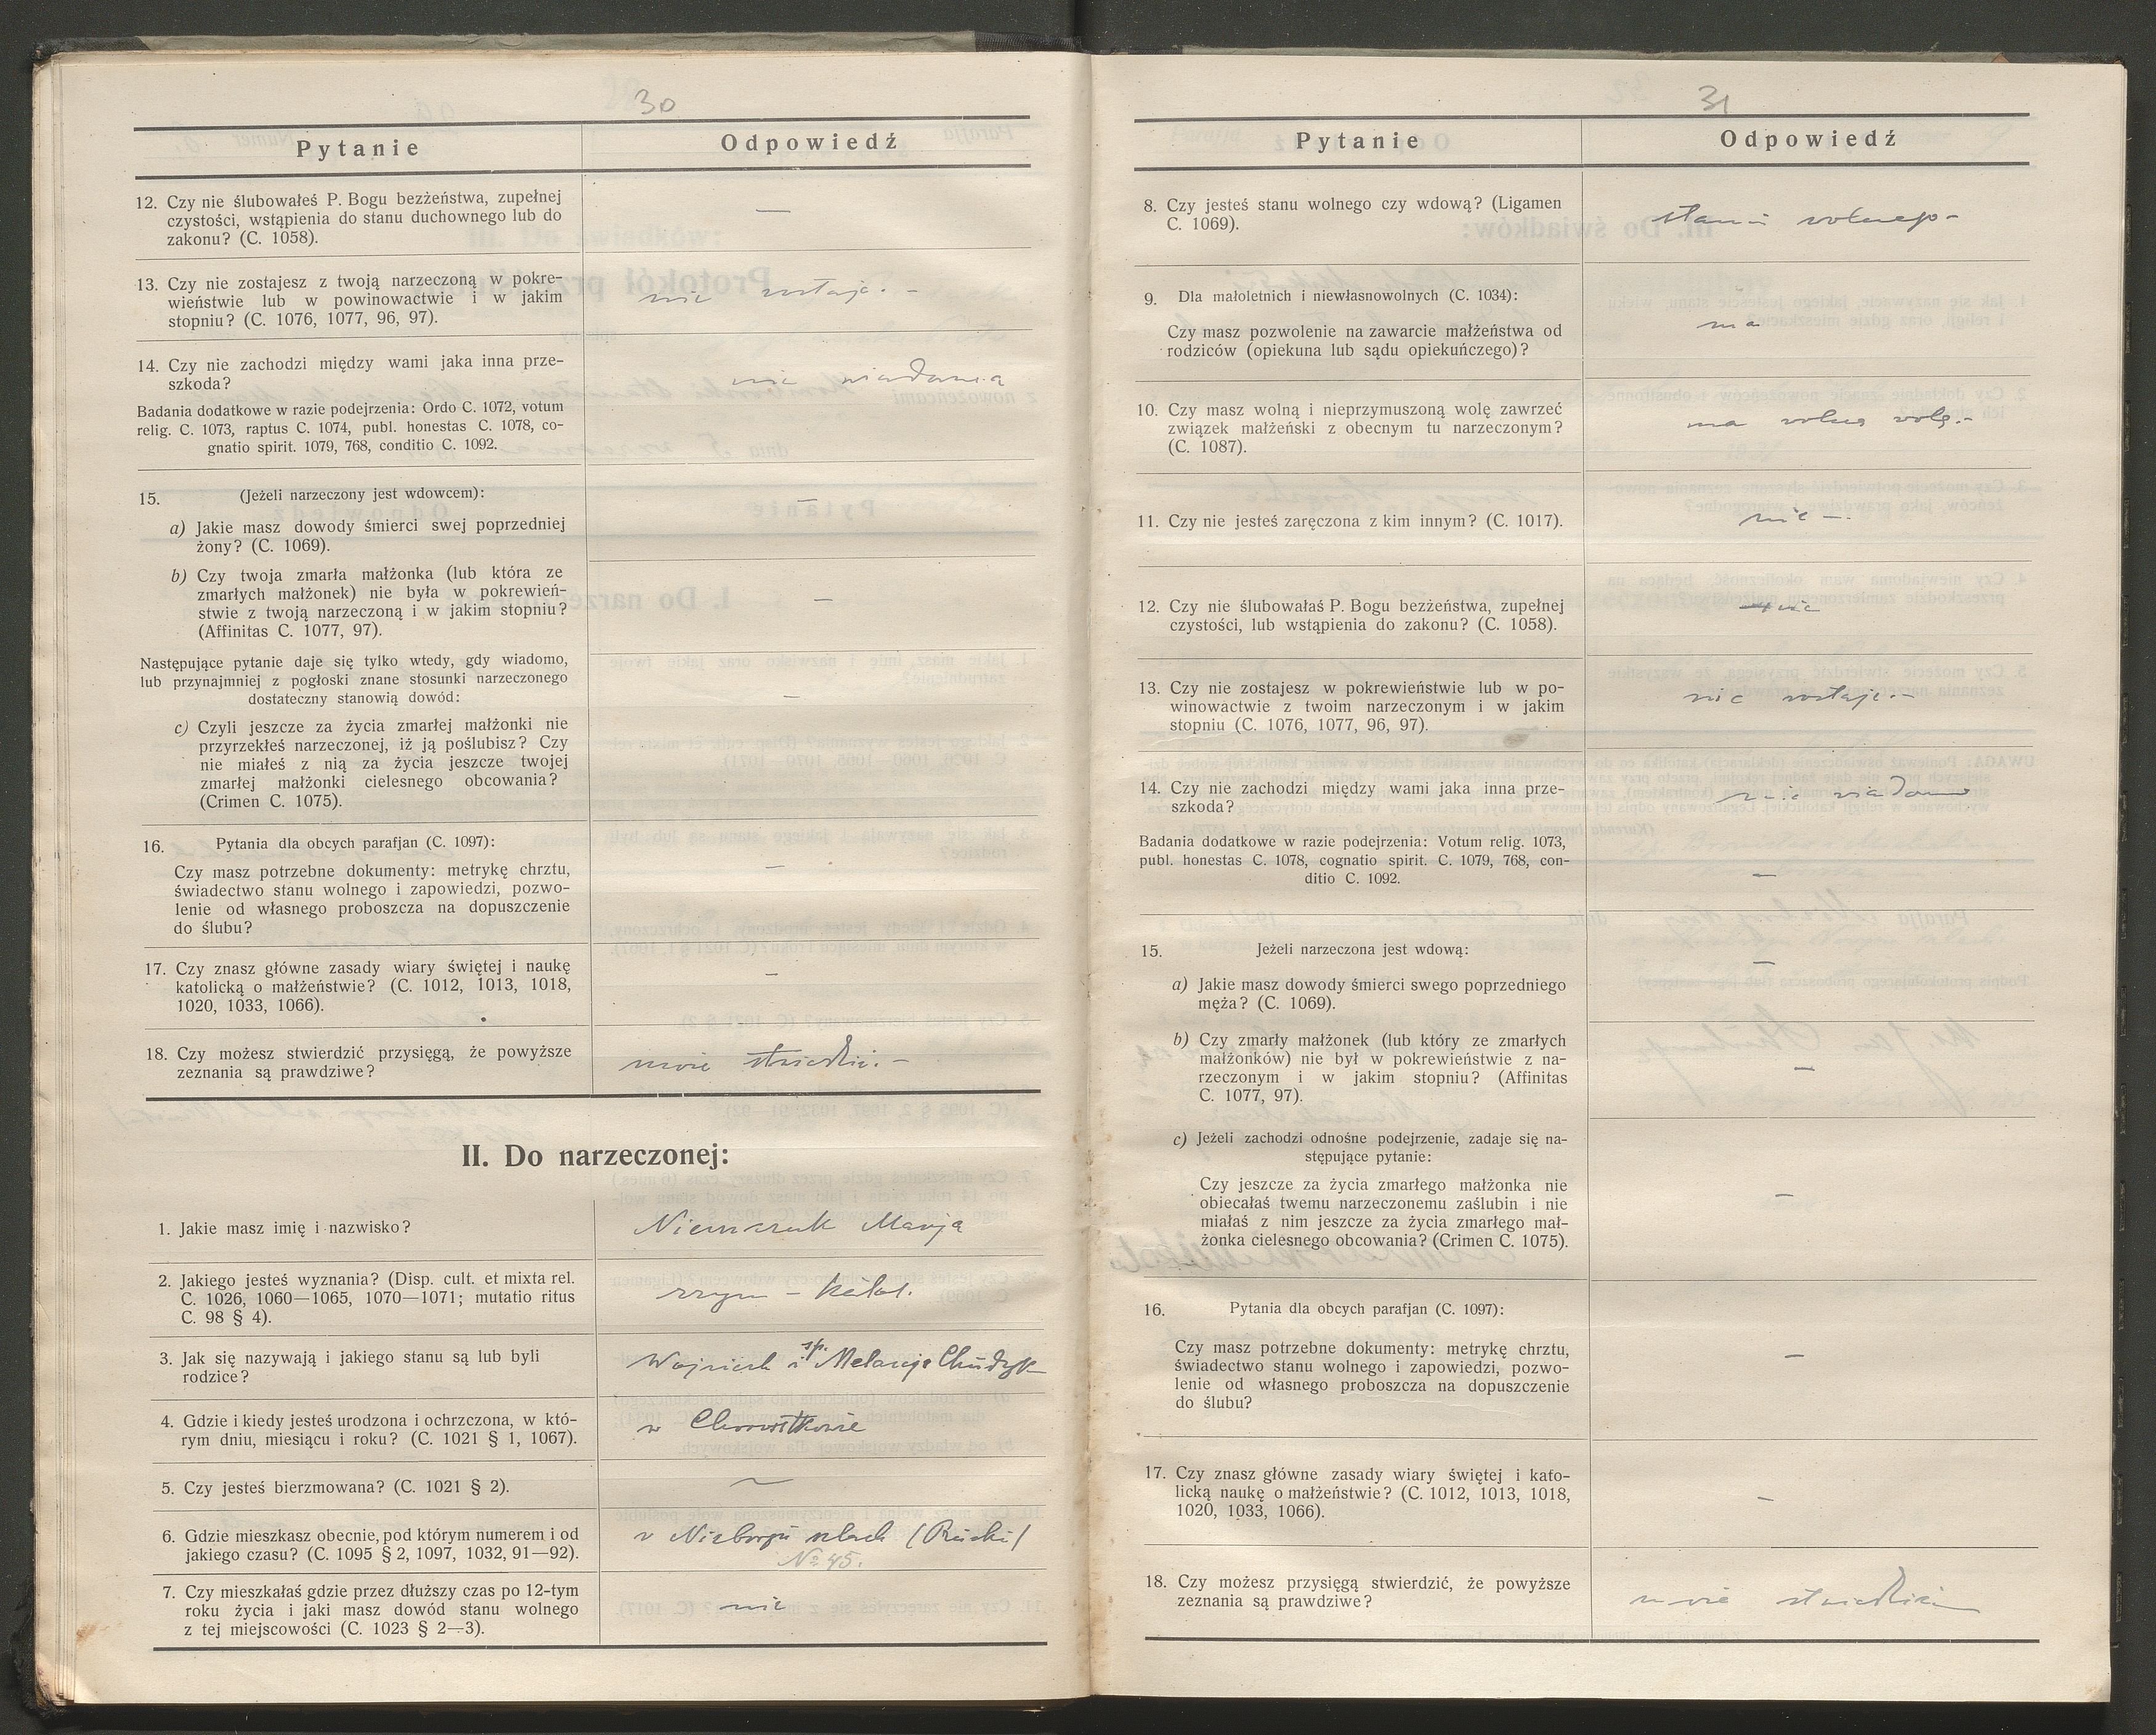 30
Pytanie
Odpowiedź
12. Czy nie ślubowałeś P. Bogu bezżeństwa, zupełnej
czystości, wstąpienia do stanu duchownego lub do
zakonu? (C. 1058).
—
13. Czy nie zostajesz z twoją narzeczoną w pokre-
wieństwie lub w powinowactwie i w jakim
stopniu? (C. 1076, 1077, 96, 97).
nie zostaje. –
14. Czy nie zachodzi między wami jaka inna prze-
szkoda?
nie wiadomo
Badania dodatkowe w razie podejrzenia: Ordo C. 1072, votum
relig. C. 1073, raptus C. 1074, publ. honestas C. 1078, co-
gnatio spirit. 1079, 768, conditio C. 1092.
15. (Jeżeli narzeczony jest wdowcem):
—
a) Jakie masz dowody śmierci swej poprzedniej
żony? (C. 1069).
b) Czy twoja zmarła małżonka (lub która ze
zmarłych małżonek) nie była w pokrewień-
stwie z twoją narzeczoną i w jakim stopniu?
(Affinitas C. 1077, 97).
—
Następujące pytanie daje się tylko wtedy, gdy wiadomo,
lub przynajmniej z pogłoski znane stosunki narzeczonego
dostateczny stanowią dowód:
—
c) Czyli jeszcze za życia zmarłej małżonki nie
przyrzekłeś narzeczonej, iż ją poślubisz? Czy
nie miałeś z nią za życia jeszcze twojej
zmarłej małżonki cielesnego obcowania?
(Crimen C. 1075).
16. Pytania dla obcych parafjan (C. 1097):
Czy masz potrzebne dokumenty: metrykę chrztu,
świadectwo stanu wolnego i zapowiedzi, pozwo-
lenie od własnego proboszcza na dopuszczenie
do ślubu?
—
17. Czy znasz główne zasady wiary świętej i naukę
katolicką o małżeństwie? (C. 1012, 1013, 1018,
1020, 1033, 1066).
—
18. Czy możesz stwierdzić przysięgą, że powyższe
zeznania są prawdziwe?
może –
II. Do narzeczonej:
1. Jakie masz imię i nazwisko?
Niemczuk Marja
2. Jakiego jesteś wyznania? (Disp. cult. et mixta rel.
C. 1026, 1060—1065, 1070—1071; mutatio ritus
C. 98 § 4).
rzym – katol.
3. Jak się nazywają i jakiego stanu są lub byli
rodzice?
Wojciech i śp. Melanja Chudzik
4. Gdzie i kiedy jesteś urodzona i ochrzczona, w któ-
rym dniu, miesiącu i roku? (C. 1021 § 1, 1067).
w Chorostkowie
5. Czy jesteś bierzmowana? (C. 1021 § 2).
~
6. Gdzie mieszkasz obecnie, pod którym numerem i od
jakiego czasu? (C. 1095 § 2, 1097, 1032, 91—92).
w Niżborgu szlach (Ruski)
No 45.
7. Czy mieszkałaś gdzie przez dłuższy czas po 12-tym
roku życia i jaki masz dowód stanu wolnego
z tej miejscowości (C. 1023 § 2—3).
nie
31
Pytanie
Odpowiedź
8. Czy jesteś stanu wolnego czy wdową? (Ligamen
C. 1069).
stanu wolnego –
9. Dla małoletnich i niewłasnowolnych (C. 1034):
Czy masz pozwolenie na zawarcie małżeństwa od
rodziców (opiekuna lub sądu opiekuńczego)?
ma
10. Czy masz wolną i nieprzymuszoną wolę zawrzeć
związek małżeński z obecnym tu narzeczonym?
(C. 1087).
ma wolną wolę. –
11. Czy nie jesteś zaręczona z kim innym? (C. 1017).
nie – .
12. Czy nie ślubowałaś P. Bogu bezżeństwa, zupełnej
czystości, lub wstąpienia do zakonu? (C. 1058).
nie
13. Czy nie zostajesz w pokrewieństwie lub w po-
winowactwie z twoim narzeczonym i w jakim
stopniu (C. 1076, 1077, 96, 97).
nie zostaje. –
14. Czy nie zachodzi między wami jaka inna prze-
szkoda?
nie wiadomo
Badania dodatkowe w razie podejrzenia: Votum relig. 1073,
publ. honestas C. 1078, cognatio spirit. C. 1079, 768, con-
ditio C. 1092.
—
15. Jeżeli narzeczona jest wdową:
—
a) Jakie masz dowody śmierci swego poprzedniego
męża? (C. 1069).
b) Czy zmarły małżonek (lub który ze zmarłych
małżonków) nie był w pokrewieństwie z na-
rzeczonym i w jakim stopniu? (Affinitas
C. 1077, 97).
—
c) Jeżeli zachodzi odnośne podejrzenie, zadaje się na-
stępujące pytanie:
Czy jeszcze za życia zmarłego małżonka nie
obiecałaś twemu narzeczonemu zaślubin i nie
miałaś z nim jeszcze za życia zmarłego mał-
żonka cielesnego obcowania? (Crimen C. 1075).
—
16. Pytania dla obcych parafjan (C. 1097):
Czy masz potrzebne dokumenty: metrykę chrztu,
świadectwo stanu wolnego i zapowiedzi, pozwo-
lenie od własnego proboszcza na dopuszczenie
do ślubu?
—
17. Czy znasz główne zasady wiary świętej i kato-
licką naukę o małżeństwie? (C. 1012, 1013, 1018,
1020, 1033, 1066).
—
18. Czy możesz przysięgą stwierdzić, że powyższe
zeznania są prawdziwe?
może